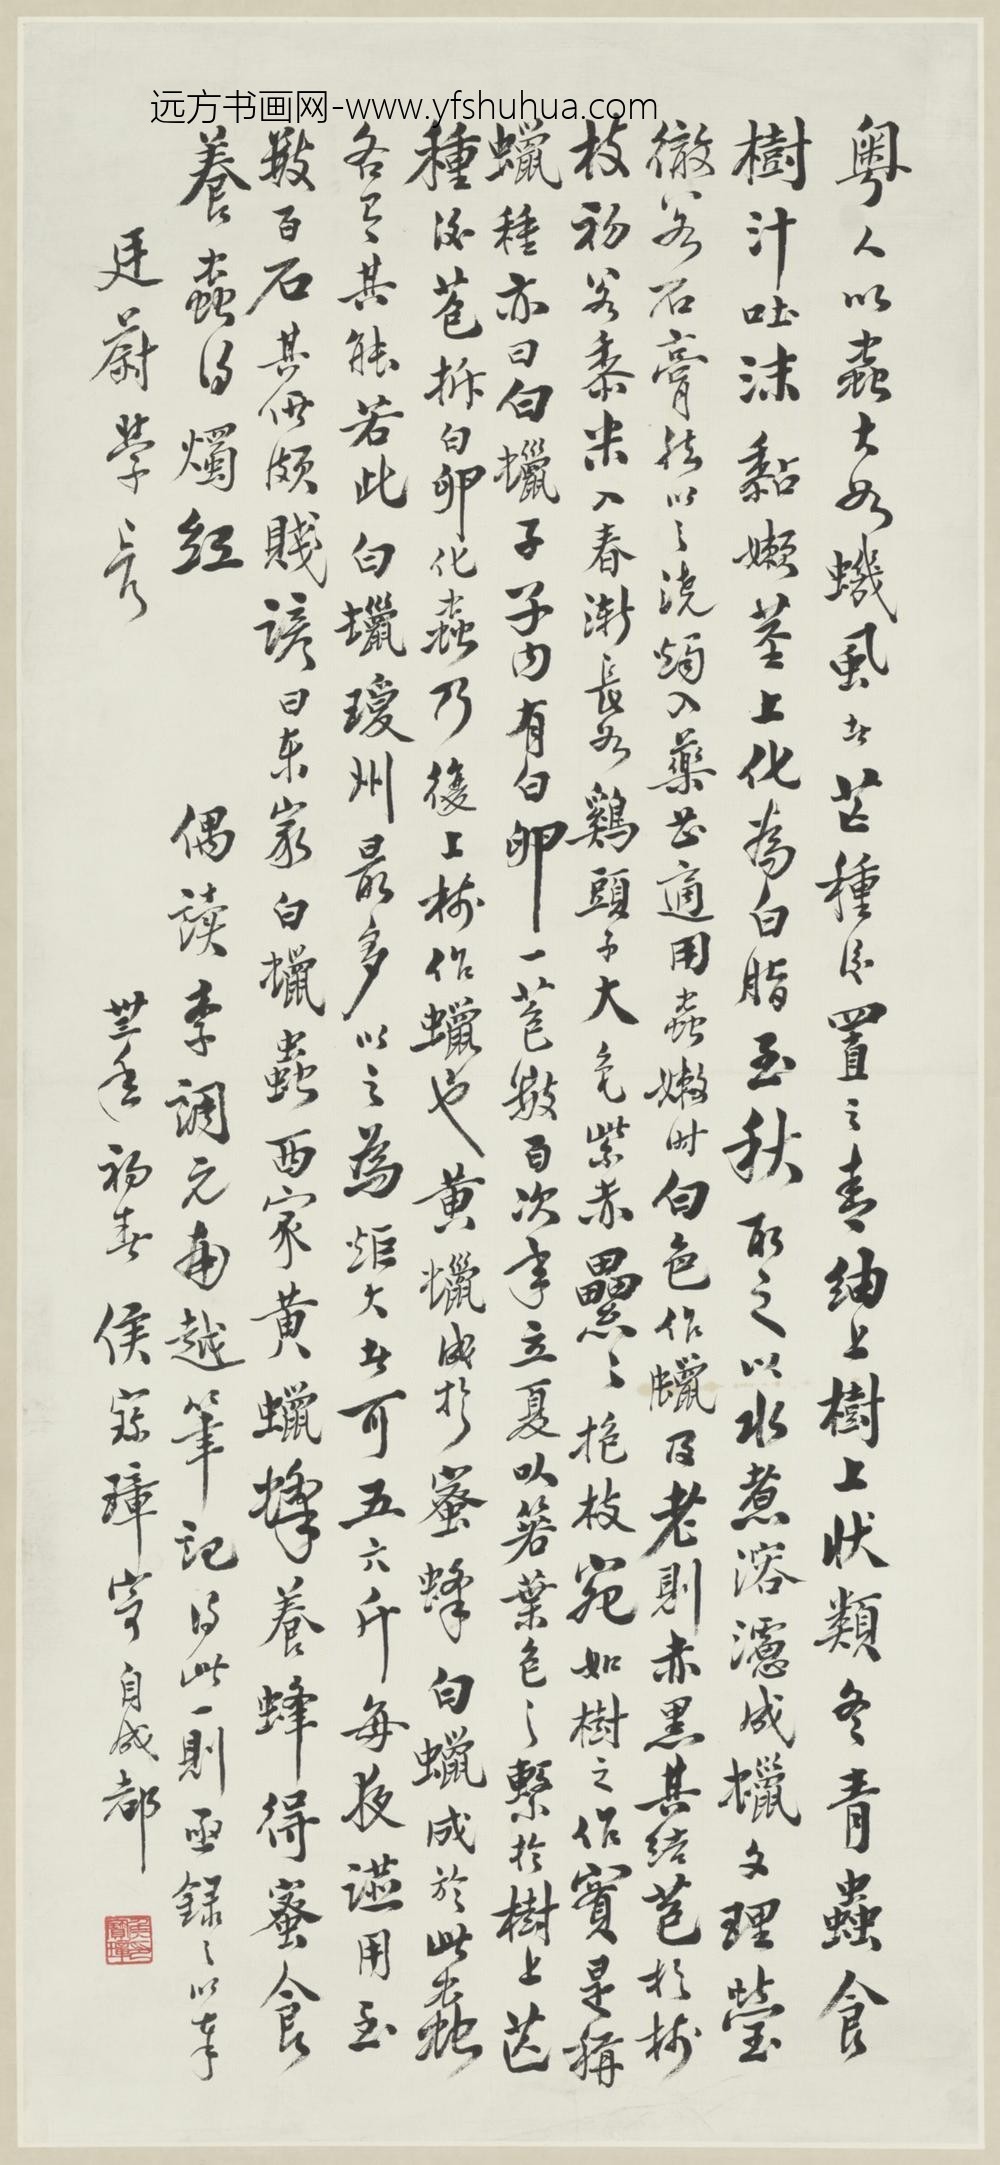 远方书画网-www.yfshuhua.com
粤人以蟲大如蟣風者芒種後置之青紬上樹上狀類冬青蟲食
樹汁吐沫黏嫩莖上化為白脂至秋取之以水煮溶濾成蠟文理瑩
徹若石膏然以之澆燭入藥甚適用蟲嫩時白色作蠟及老則赤黑其結苞於樹
枝初若黍米入春漸長如鷄頭子大色紫赤纍々抱枝宛如樹之作實是稱
蠟種亦曰白蠟子子内有白卵一苞數百次年立夏以箬葉包之繫於樹上芒
種後苞拆白卵化蟲乃復上樹作蠟也黄蠟成於蜜蜂白蠟成於此蟲
各有其能若此白蠟瓊州最多以之為炬大者可五六斤每夜讌用至
數百石其価頗賤諺曰東家白蠟蟲西家黄蠟蜂養蜂得蜜食
養蟲得燭紅 偶讀李調元南越筆記得此一則亟録之以奉
廷蔚學長 卅三年初春 侯寳璋寄自成都